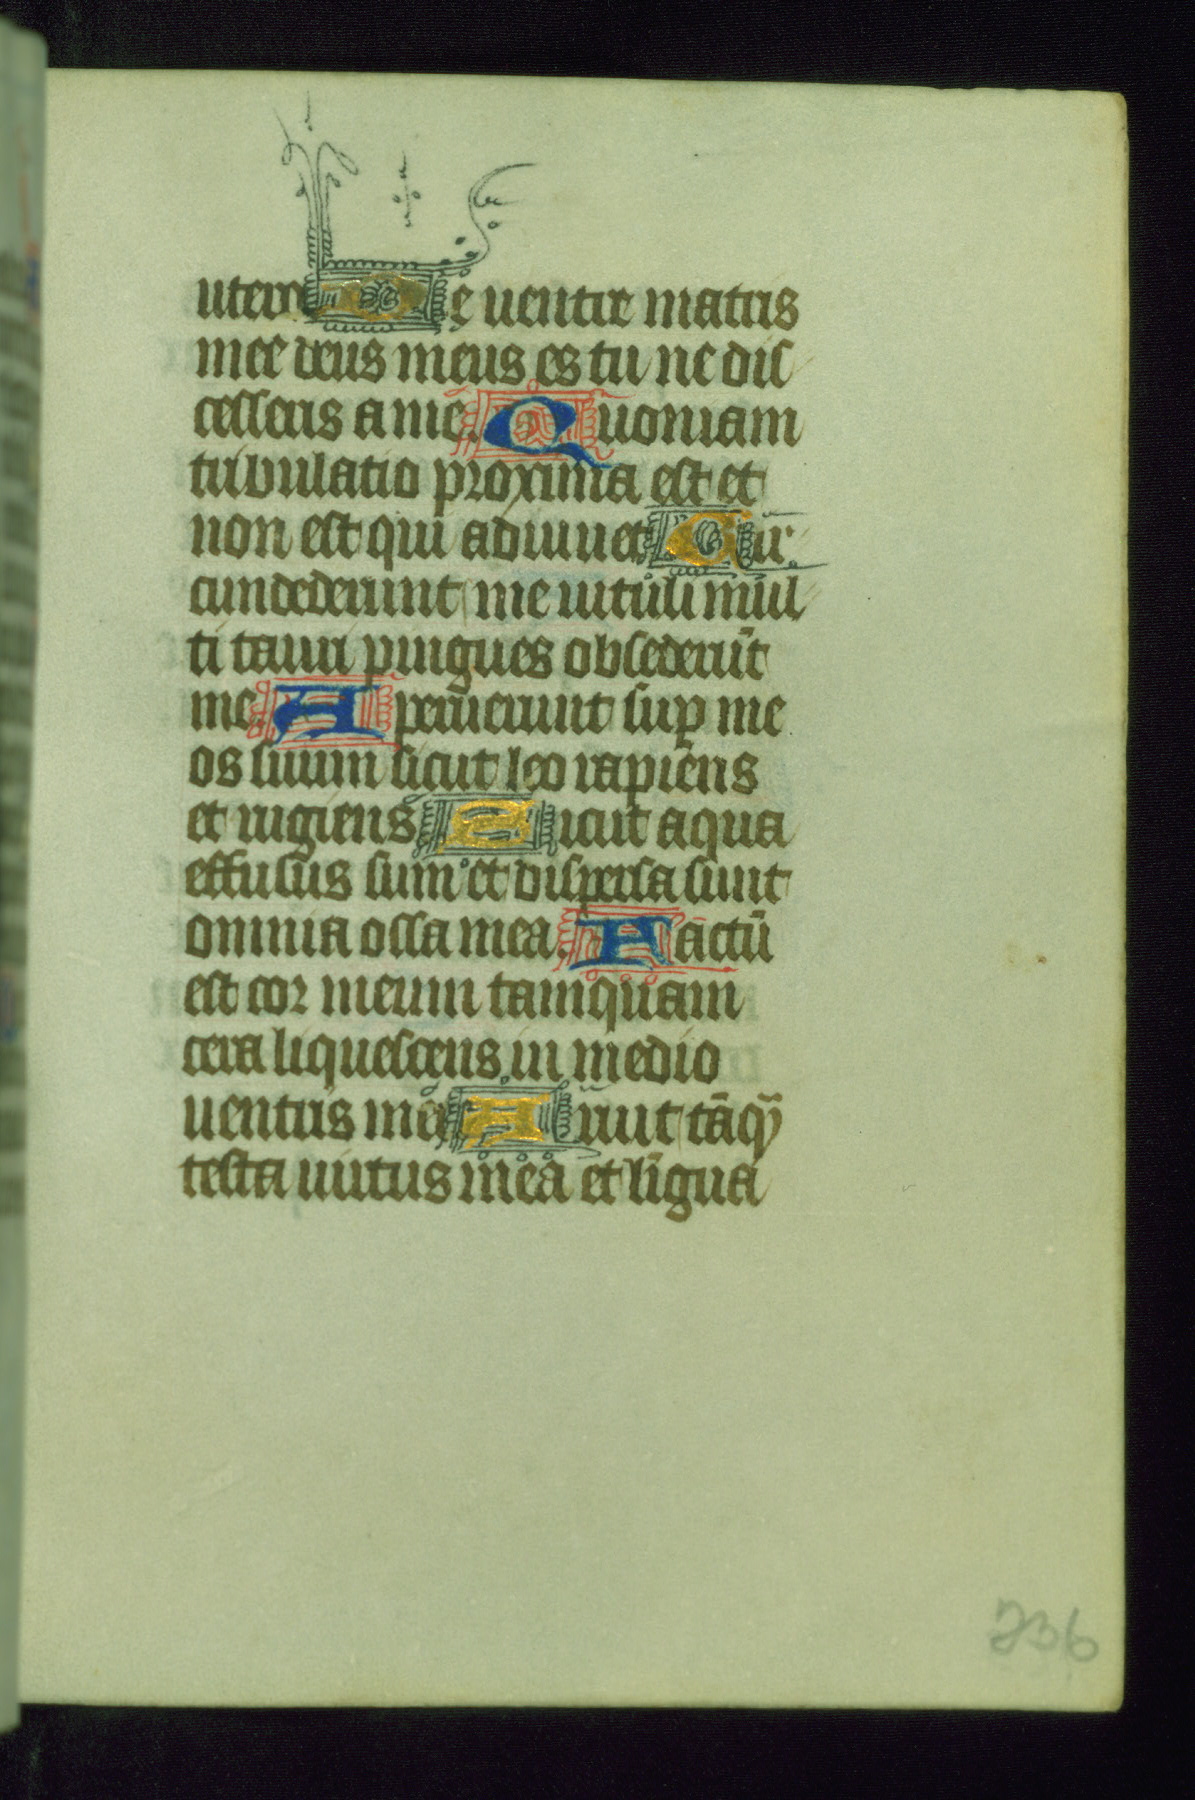 utero De ventre matris
mee deus meus es tu ne dis
cesseris a me. Quoniam
tribulatio proxima est et
non est qui adiuuet Cir
cundederunt me uituli mul
ti tauri pingues obsederūt
me. Aperuerunt sup me
os suum sicut leo rapiens
et rugiens Sicut aqua
effusus sum et dispersa sunt
omnia ossa mea. Factū
est cor meum tamquam
cera liquescens in medio
uentris mei Aruit tāq̄
testa uirtus mea et lingua
236